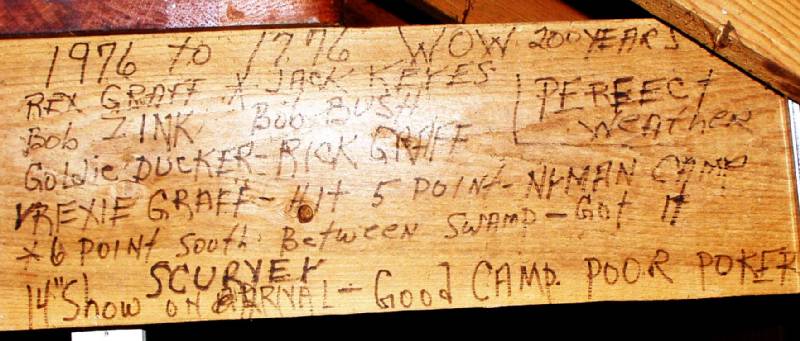 1976 to 1776 WOW 200 YEARS
REX GRAFF X JACK KEYES
Bob ZINK Bob BUSH
PERFECT
WEATHER
GOLDIE DUCKER - RICK GRAFF
√REXIE GRAFF - HIT 5 POINT - NYMAN CAMP
X 6 POINT SOUTH BETWEEN SWAMP - GOT IT
SCURVEY
14" Show ON ARRIVAL - Good CAMP. POOR POKER